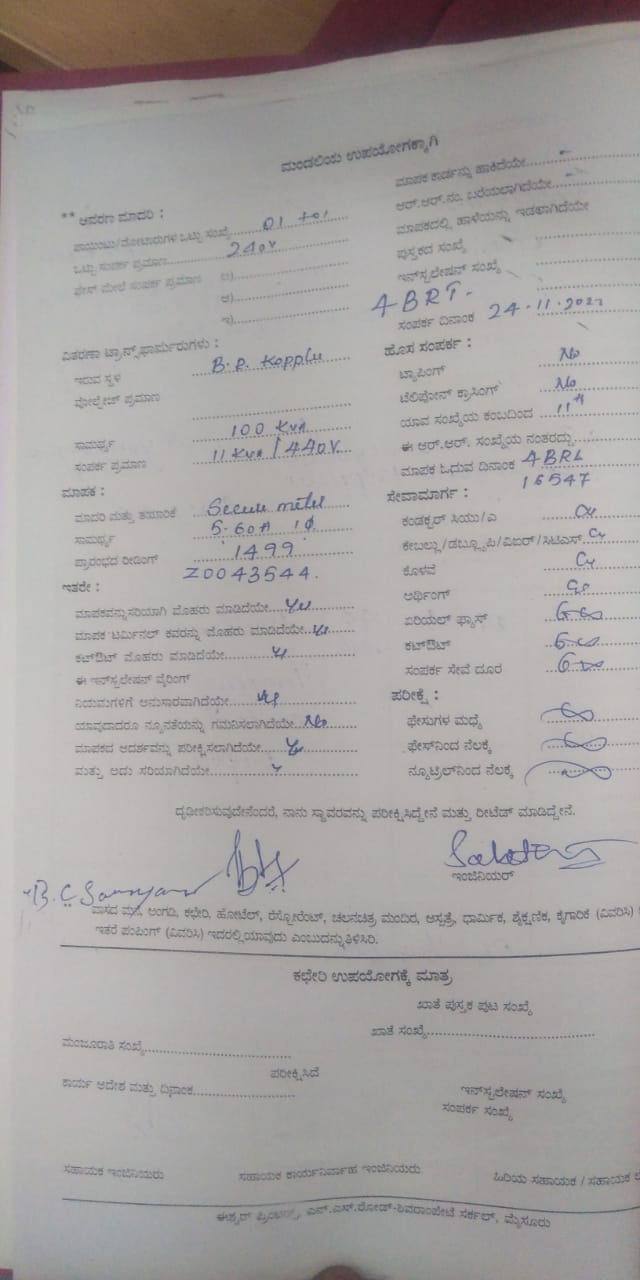 ಮಂಡಲಿಯ ಉಪಯೋಗಕ್ಕಾಗಿ
** ಆವರಣ ಮಾದರಿ :
ಪಾಯಿಂಟು/ಮೋಟಾರುಗಳ ಒಟ್ಟು ಸಂಖ್ಯೆ 01
ಒಟ್ಟು ಸಂಪರ್ಕ ಪ್ರಮಾಣ 240V
ಫೇಸ್ ಮೇಲೆ ಸಂಪರ್ಕ ಪ್ರಮಾಣ ಅ)
ಆ)
ಇ)
ವಿತರಣಾ ಟ್ರಾನ್ಸ್‌ಫಾರ್ಮರುಗಳು :
ಇರುವ ಸ್ಥಳ B.P. Kopplu
ವೋಲ್ಟೇಜ್ ಪ್ರಮಾಣ
ಸಾಮರ್ಥ್ಯ 100 KVA
ಸಂಪರ್ಕ ಪ್ರಮಾಣ 11 KVA / 440V
ಮಾಪಕ :
ಮಾದರಿ ಮತ್ತು ತಯಾರಿಕೆ Secure meter
ಸಾಮರ್ಥ್ಯ 5-60A 1φ
ಪ್ರಾರಂಭದ ರೀಡಿಂಗ್ 1499
Z0043544.
ಇತರೇ :
ಮಾಪಕವನ್ನು ಸರಿಯಾಗಿ ಮೊಹರು ಮಾಡಿದೆಯೇ Yes
ಮಾಪಕ ಟರ್ಮಿನಲ್ ಕವರನ್ನು ಮೊಹರು ಮಾಡಿದೆಯೇ Yes
ಕಟ್‌ಔಟ್ ಮೊಹರು ಮಾಡಿದೆಯೇ
ಈ ಇನ್‌ಸ್ಟಲೇಷನ್ ವೈರಿಂಗ್
ನಿಯಮಗಳಿಗೆ ಅನುಸಾರವಾಗಿದೆಯೇ Yes
ಯಾವುದಾದರೂ ನ್ಯೂನತೆಯನ್ನು ಗಮನಿಸಲಾಗಿದೆಯೇ No
ಮಾಪಕದ ಆದರ್ಶವನ್ನು ಪರೀಕ್ಷಿಸಲಾಗಿದೆಯೇ
ಮತ್ತು ಅದು ಸರಿಯಾಗಿದೆಯೇ
ಮಾಪಕ ಕಾರ್ಡನ್ನು ಹಾಕಿದೆಯೇ
ಆರ್.ಆರ್.ನಂ. ಬರೆಯಲಾಗಿದೆಯೇ
ಮಾಪಕದಲ್ಲಿ ಹಾಳೆಯನ್ನು ಇಡಲಾಗಿದೆಯೇ
ಪುಸ್ತಕದ ಸಂಖ್ಯೆ
ಇನ್‌ಸ್ಟಲೇಷನ್ ಸಂಖ್ಯೆ
ABRT-
ಸಂಪರ್ಕ ದಿನಾಂಕ 24-11-202
ಹೊಸ ಸಂಪರ್ಕ :
ಟ್ಯಾಪಿಂಗ್ No
ಟೆಲಿಫೋನ್ ಕ್ರಾಸಿಂಗ್ No
ಯಾವ ಸಂಖ್ಯೆಯ ಕಂಬದಿಂದ
ಈ ಆರ್.ಆರ್. ಸಂಖ್ಯೆಯ ನಂತರದ್ದು
ಮಾಪಕ ಓದುವ ದಿನಾಂಕ ABRL
16547
ಸೇವಾಮಾರ್ಗ :
ಕಂಡಕ್ಟರ್ ಸಿಯು/ಎ Cu
ಕೇಬಲ್ಲು/ಡಬ್ಲ್ಯೂಪಿ/ವಿಐಆರ್/ಸಿಟಿಎಸ್ Cu
ಕೊಳವೆ Cu
ಅರ್ಥಿಂಗ್
ಏರಿಯಲ್ ಫ್ಯೂಸ್
ಕಟ್‌ಔಟ್
ಸಂಪರ್ಕ ಸೇವೆ ದೂರ
ಪರೀಕ್ಷೆ :
ಫೇಸುಗಳ ಮಧ್ಯೆ
ಫೇಸ್‌ನಿಂದ ನೆಲಕ್ಕೆ
ನ್ಯೂಟ್ರಲ್‌ನಿಂದ ನೆಲಕ್ಕೆ
ದೃಢೀಕರಿಸುವುದೇನೆಂದರೆ, ನಾನು ಸ್ಥಾವರವನ್ನು ಪರೀಕ್ಷಿಸಿದ್ದೇನೆ ಮತ್ತು ರೀಟೆಡ್ ಮಾಡಿದ್ದೇನೆ.
ಇಂಜಿನಿಯರ್
ವಾಸದ ಮನೆ, ಅಂಗಡಿ, ಕಛೇರಿ, ಹೋಟೆಲ್, ರೆಸ್ಟೋರೆಂಟ್, ಚಲನಚಿತ್ರ ಮಂದಿರ, ಆಸ್ಪತ್ರೆ, ಧಾರ್ಮಿಕ, ಶೈಕ್ಷಣಿಕ, ಕೈಗಾರಿಕೆ (ವಿವರಿಸಿ)
ಇತರೆ ಪಂಪಿಂಗ್ (ವಿವರಿಸಿ) ಇದರಲ್ಲಿ ಯಾವುದು ಎಂಬುದನ್ನು ತಿಳಿಸಿರಿ.
ಕಛೇರಿ ಉಪಯೋಗಕ್ಕೆ ಮಾತ್ರ
ಖಾತೆ ಪುಸ್ತಕ ಪುಟ ಸಂಖ್ಯೆ
ಖಾತೆ ಸಂಖ್ಯೆ
ಮಂಜೂರಾತಿ ಸಂಖ್ಯೆ
ಪರೀಕ್ಷಿಸಿದೆ
ಕಾರ್ಯ ಆದೇಶ ಮತ್ತು ದಿನಾಂಕ
ಇನ್‌ಸ್ಟಲೇಷನ್ ಸಂಖ್ಯೆ
ಸಂಪರ್ಕ ಸಂಖ್ಯೆ
ಸಹಾಯಕ ಇಂಜಿನಿಯರು ಸಹಾಯಕ ಕಾರ್ಯನಿರ್ವಾಹ ಇಂಜಿನಿಯರು ಹಿರಿಯ ಸಹಾಯಕ / ಸಹಾಯಕ
ಈಶ್ವರ್ ಪ್ರಿಂಟರ್ಸ್, ಎನ್.ಎಸ್.ರೋಡ್-ಶಿವರಾಂಪೇಟೆ ಸರ್ಕಲ್, ಮೈಸೂರು